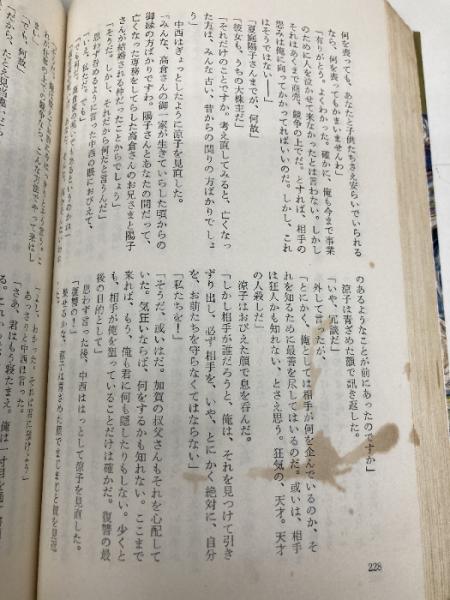 何を喪っても、あなたと子供たちさえ安らいでいられる
なら、何を喪ってもかまいませんわ」
「ありがとう。よくわかった。確かに、俺も今まで事業
のために人を泣かせて来なかったとは言わない。しかし
それはあくまで商売、競争の上でだ。とすれば、相手の
恨みは俺に向ってかかってくればいいのだ。しかし、これ
はそうではない――」
「夏庭陽子さんまでが、何故」
「彼女も、うちの大株主だ」
「それだけのことですか。考え直してみると、亡くなっ
た方は、みんな古い、昔からの関りの方ばかりでしょ
う」
中西はぎょっとしたように涼子を見直した。
「みんな、高倉さんの御一家が生きていらした頃からの
御縁の方ばかりですわ。陽子さんとあなたの間だって、
亡くなった専務をしてらした高倉さんのお兄さまと陽子
さんが結婚される仲だったことからでしょう」
「そうだ。しかし、それだから何だと言うんだ」
思わず咎めるように言った中西の眼におびえて、
のあるようなことが前にあったのですか」
涼子は青ざめた顔で訊き返した。
「いや、冗談だ」
外して言ったが、
「とにかく、俺としては相手が何を企んでいるのか、そ
れを知るために最善を尽してはいるのだ。或いは、相手
は狂人かも知れない、とさえ思う。狂気の、天才。天才
の人殺しだ」
涼子はおびえた顔で息を呑んだ。
「しかし相手が誰だろうと、俺は、それを見つけて引き
ずり出し、必ず相手を、いや、とにかく絶対に、自分
を、お前たちを守らなくてはならない」
「私たちを！」
「そうだ、或いはだ。加賀の叔父さんもそれを心配して
いた。気狂いならば、何をするかも知れない。ここまで
来れば、もう、俺も君に何も隠したりもしない。少くと
も、相手が俺を狙っていることだけは確かだ。復讐の最
後の目的として」
「復讐の！」
思わず言った後、中西ははっとして涼子を見直した。
228